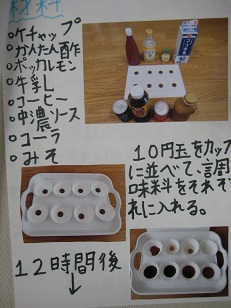 材料
○ケチャップ
○かんたん酢
○ポッカレモン
○牛乳
○コーヒー
○中濃ソース
○コーラ
○みそ
10円玉をカップ
に並べて、調
味料をそれぞ
れに入れる。
12時間後
↓